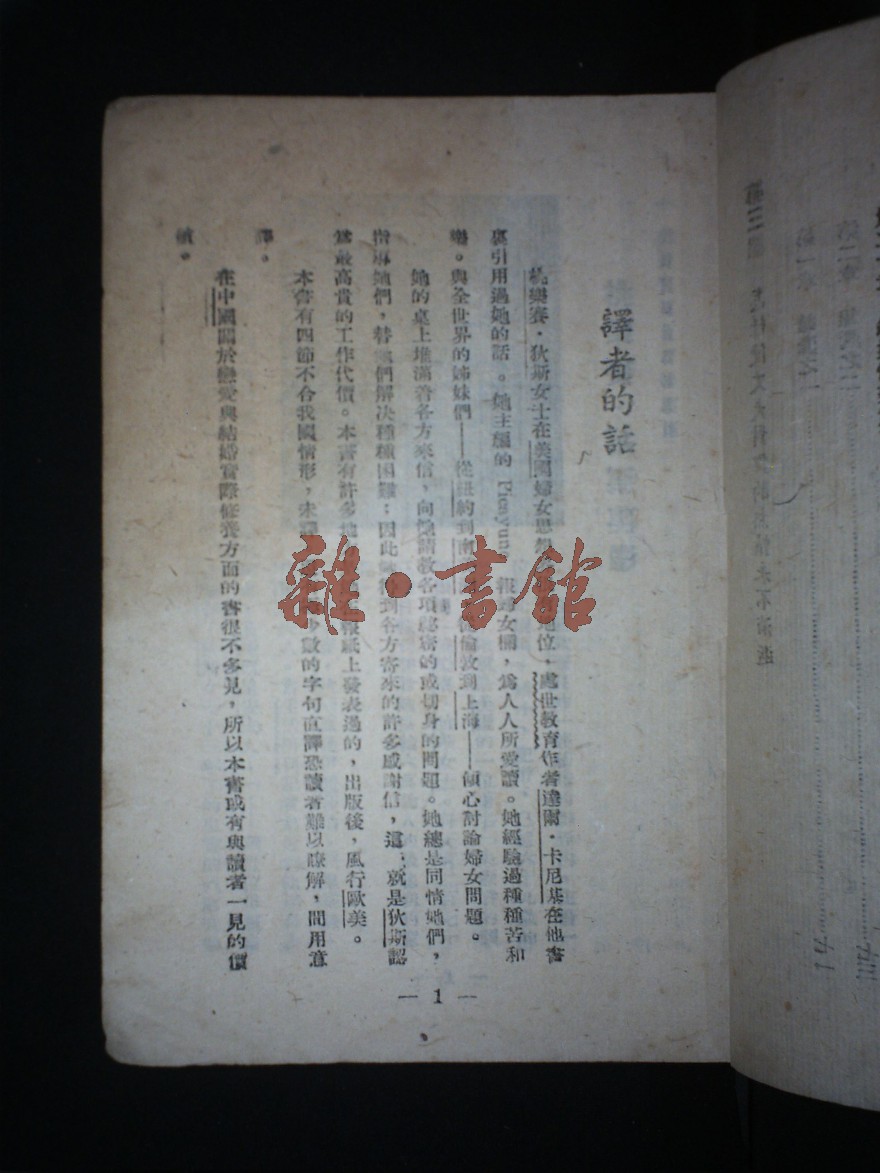 譯者的話
桃樂賽·狄斯女士在美國婦女思想 位，處世教育作者達爾·卡尼基在他書
裏引用過她的話。她主編的 報婦女欄，爲人人所愛讀。她經驗過種種苦和
樂。與全世界的姊妹們——從紐約到南 從倫敦到上海——傾心討論婦女問題。
她的桌上堆滿着各方來信，向她請教各項秘密的或切身的問題。她總是同情她們，
指導她們，替她們解決種種困難；因此 到各方寄來的許多感謝信，這，就是狄斯認
爲最高貴的工作代價。本書有許多地 報紙上發表過的，出版後，風行歐美。
本書有四節不合我國情形，未譯 少數的字句直譯恐讀者難以瞭解，間用意
譯。
在中國關於戀愛與結婚實際修養方面的書很不多見，所以本書或有與讀者一見的價
值。
— 1 —
雜·書館